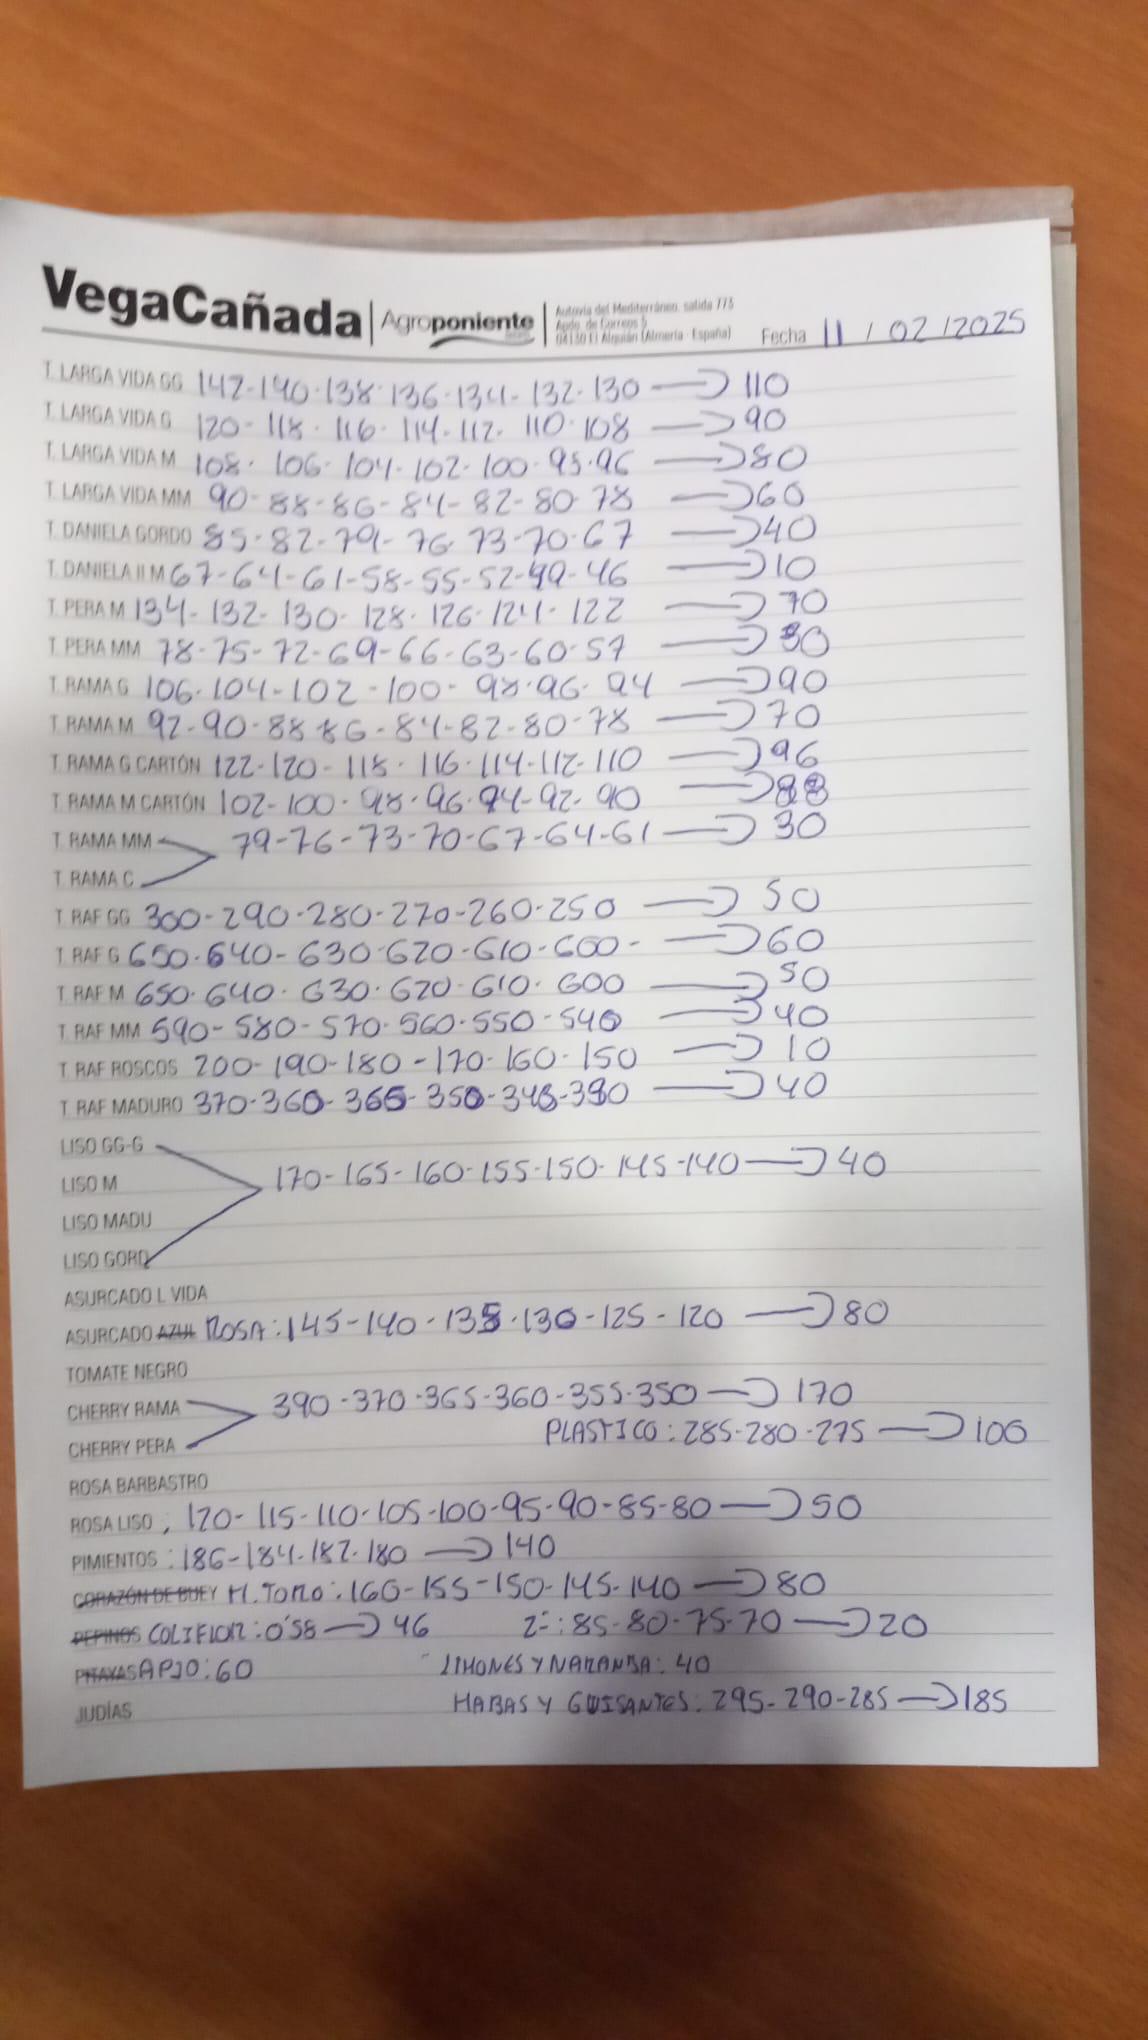 VegaCañada | Agroponiente | Autovía del Mediterráneo, salida 775
Apdo. de Correos 5
04130 El Alquián (Almería - España)
Fecha 11 / 02 / 2025
T. LARGA VIDA GG 142-140-138-136-134-132-130 → 110
T. LARGA VIDA G 120-118-116-114-112-110-108 → 90
T. LARGA VIDA M 108-106-104-102-100-95-96 → 80
T. LARGA VIDA MM 90-88-86-84-82-80-78 → 60
T. DANIELA GORDO 85-82-79-76-73-70-67 → 40
T. DANIELA II M 67-64-61-58-55-52-49-46 → 10
T. PERA M 134-132-130-128-126-124-122 → 70
T. PERA MM 78-75-72-69-66-63-60-57 → 30
T. RAMA G 106-104-102-100-98-96-94 → 90
T. RAMA M 92-90-88-86-84-82-80-78 → 70
T. RAMA G CARTÓN 122-120-118-116-114-112-110 → 96
T. RAMA M CARTÓN 102-100-98-96-94-92-90 → 88
T. RAMA MM 79-76-73-70-67-64-61 → 30
T. RAMA C
T. RAF GG 300-290-280-270-260-250 → 50
T. RAF G 650-640-630-620-610-600- → 60
T. RAF M 650-640-630-620-610-600 → 50
T. RAF MM 590-580-570-560-550-540 → 40
T. RAF ROSCOS 200-190-180-170-160-150 → 10
T. RAF MADURO 370-360- → 40
LISO GG-G
LISO M 170-165-160-155-150-145-140 → 40
LISO MADU
LISO GORD
ASURCADO L VIDA
ASURCADO AZUL ROSA: 145-140-135-130-125-120 → 80
TOMATE NEGRO
CHERRY RAMA 390-370-365-360-355-350 → 170
CHERRY PERA PLASTICO: 285-280-275 → 100
ROSA BARBASTRO
ROSA LISO : 120-115-110-105-100-95-90-85-80 → 50
PIMIENTOS : 186-184-182-180 → 140
CORAZÓN DE BUEY M. TORO: 160-155-150-145-140 → 80
PEPINOS COLIFLOR: 0'58 → 46 2ª: 85-80-75-70 → 20
PITAYAS APIO: 60 LIMONES Y NARANJA: 40
JUDÍAS HABAS Y GUISANTES: 295-290-285 → 185